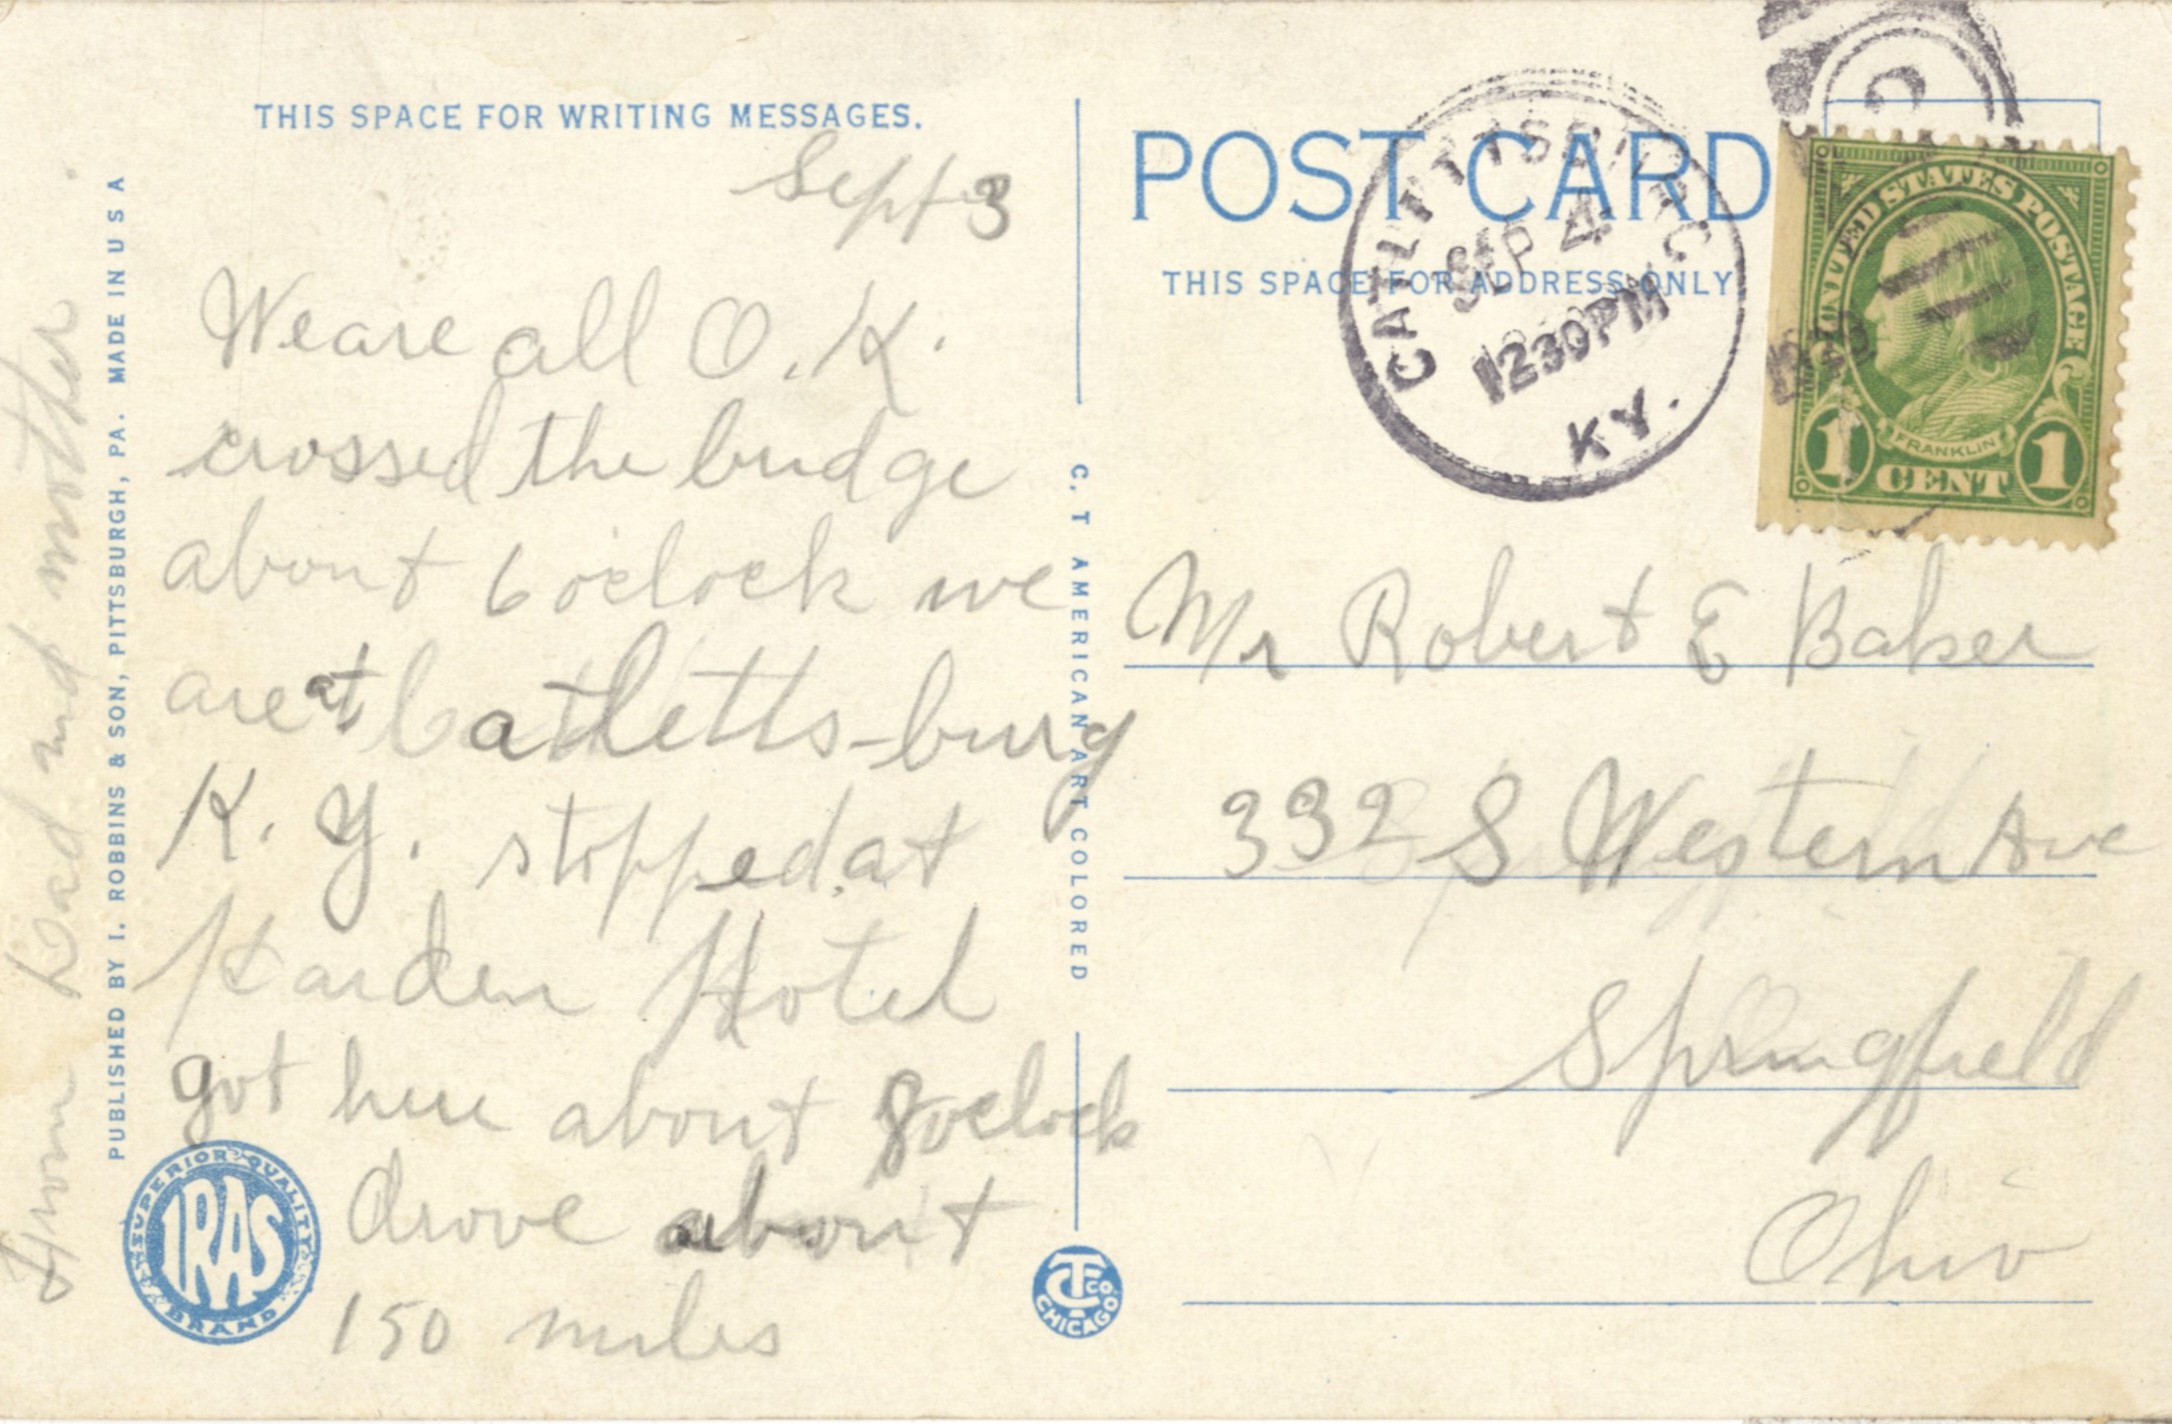 THIS SPACE FOR WRITING MESSAGES.
Sept 3
We are all O.K.
crossed the bridge
about 6 oclock we
are at Catletts-burg
K.Y. stopped at
Harden Hotel
got here about 8 oclock
drove about
150 miles
From Dad and mother.
PUBLISHED BY I. ROBBINS & SON, PITTSBURGH, PA. MADE IN U S A
SUPERIOR QUALITY
IRAS
BRAND
C. T AMERICAN ART COLORED
CHICAGO
POST CARD
THIS SPACE FOR ADDRESS ONLY
CATLETTSBURG
SEP 4
1230PM
KY.
2
UNITED STATES POSTAGE
FRANKLIN
1 CENT 1
Mr Robert E Baker
332 S Western Ave
Springfield
Ohio